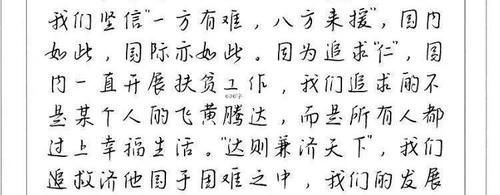 我们坚信"一方有难，八方来援"，国内
如此，国际亦如此。因为追求"仁"，国
内一直开展扶贫工作，我们追求的不
是某个人的飞黄腾达，而是所有人都
过上幸福生活。"达则兼济天下"，我们
追救济他国于困难之中，我们的发展